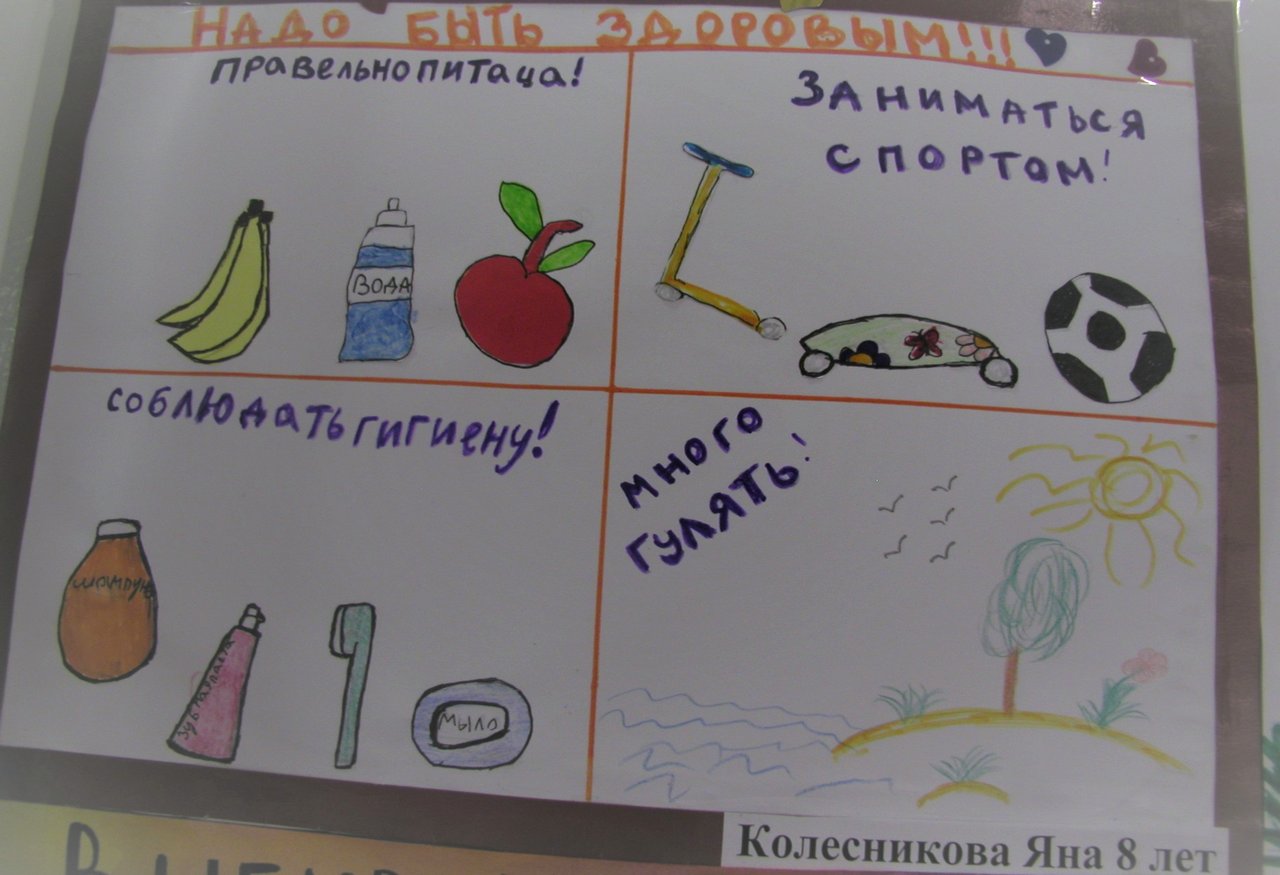 НАДО БЫТЬ ЗДОРОВЫМ!!!
ПРАВЕЛЬНОПИТАЦА!
ВОДА
ЗАНИМАТЬСЯ
СПОРТОМ!
СОБЛЮДАТЬГИГИЕНУ!
шампунь
зубнаяпаста
МЫЛО
МНОГО
ГУЛЯТЬ!
Колесникова Яна 8 лет